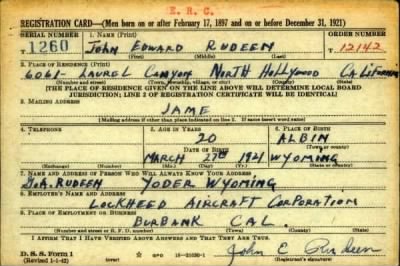 E. R. C.
REGISTRATION CARD—(Men born on or after February 17, 1897 and on or before December 31, 1921)
SERIAL NUMBER 1. NAME (Print) ORDER NUMBER
1260 John Edward Rudeen 12142
(First) (Middle) (Last)
2. PLACE OF RESIDENCE (Print)
6061- Laurel Canyon North Hollywood California
(Number and street) (Town, township, village, or city) (County) (State)
[THE PLACE OF RESIDENCE GIVEN ON THE LINE ABOVE WILL DETERMINE LOCAL BOARD
JURISDICTION; LINE 2 OF REGISTRATION CERTIFICATE WILL BE IDENTICAL]
3. MAILING ADDRESS
SAME
[Mailing address if other than place indicated on line 2. If same insert word same]
4. TELEPHONE 5. AGE IN YEARS 6. PLACE OF BIRTH
20 ALBIN
DATE OF BIRTH (Town or county)
MARCH 27th 1921 WYOMING
(Exchange) (Number) (Mo.) (Day) (Yr.) (State or country)
7. NAME AND ADDRESS OF PERSON WHO WILL ALWAYS KNOW YOUR ADDRESS
G.A. RUDEEN YODER WYOMING
8. EMPLOYER'S NAME AND ADDRESS
LOCKHEED AIRCRAFT CORPORATION
9. PLACE OF EMPLOYMENT OR BUSINESS
BURBANK CAL.
(Number and street or R. F. D. number) (Town) (County) (State)
I AFFIRM THAT I HAVE VERIFIED ABOVE ANSWERS AND THAT THEY ARE TRUE.
D. S. S. Form 1
(Revised 1-1-42) GPO 16—21630-1 John E Rudeen